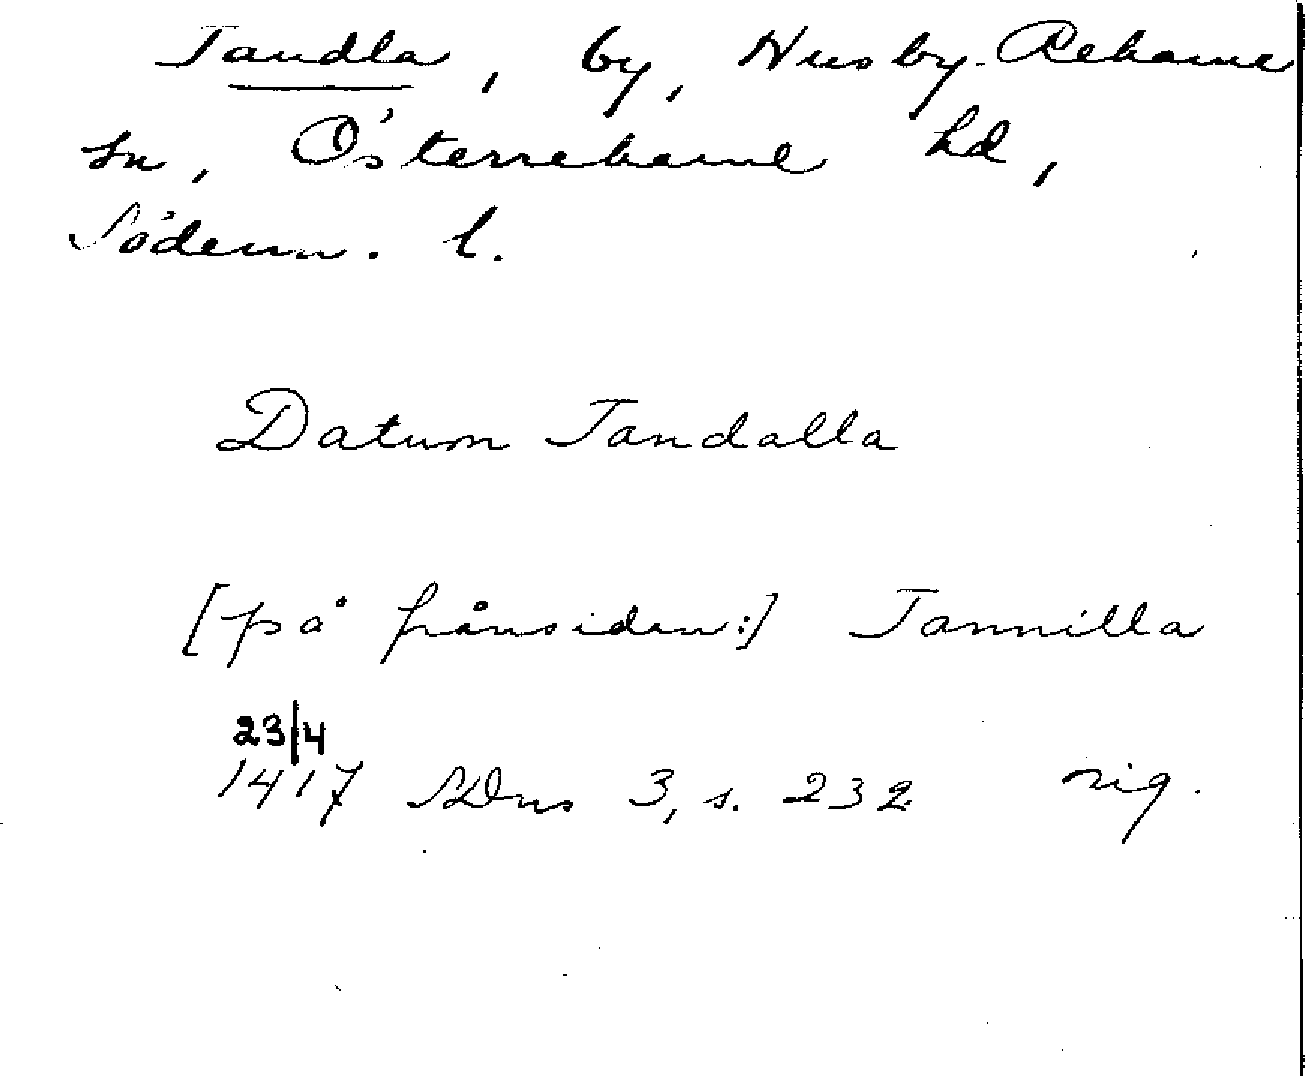 Tandla, by, Husby-Rekarne
sn, Österrekarne hd,
Söderm. l.
Datum Tandalla
[på frånsidan:] Tannilla
23/4
1417 SDns 3, s. 232 sig.